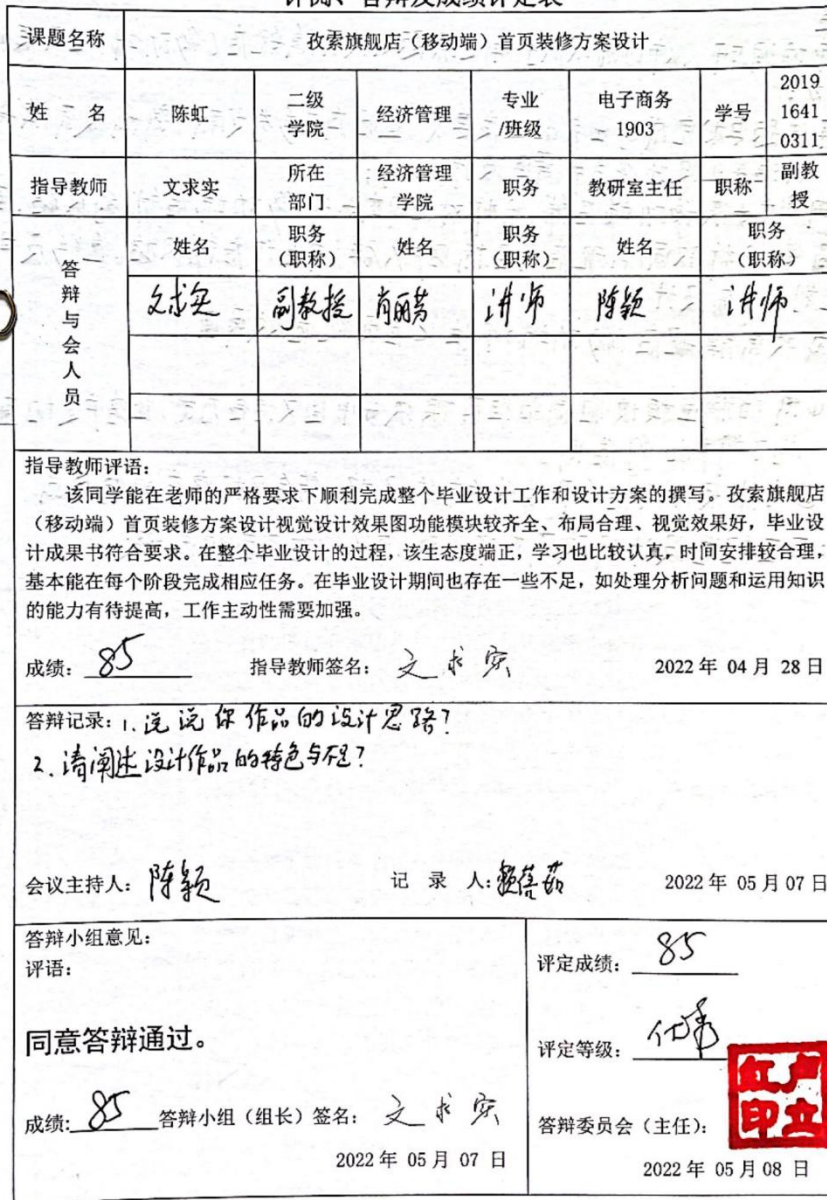 评阅、答辩及成绩评定表
课题名称 孜索旗舰店（移动端）首页装修方案设计
姓 名 陈虹 二级学院 经济管理 专业/班级 电子商务1903 学号 201916410311
指导教师 文求实 所在部门 经济管理学院 职务 教研室主任 职称 副教授
答辩与会人员
姓名 职务（职称） 姓名 职务（职称） 姓名 职务（职称）
文求实 副教授 肖丽芳 讲师 陈颖 讲师
指导教师评语：
该同学能在老师的严格要求下顺利完成整个毕业设计工作和设计方案的撰写。孜索旗舰店
（移动端）首页装修方案设计视觉设计效果图功能模块较齐全、布局合理、视觉效果好，毕业设
计成果书符合要求。在整个毕业设计的过程，该生态度端正，学习也比较认真，时间安排较合理，
基本能在每个阶段完成相应任务。在毕业设计期间也存在一些不足，如处理分析问题和运用知识
的能力有待提高，工作主动性需要加强。
成绩：85 指导教师签名：文求实 2022年04月28日
答辩记录：1.说说你作品的设计思路？
2.请阐述设计作品的特色与不足？
会议主持人：陈颖 记 录 人： 2022年05月07日
答辩小组意见：
评语：
同意答辩通过。
成绩：85 答辩小组（组长）签名：文求实
2022年05月07日
评定成绩：85
评定等级：优秀
答辩委员会（主任）：
卢立红印
2022年05月08日